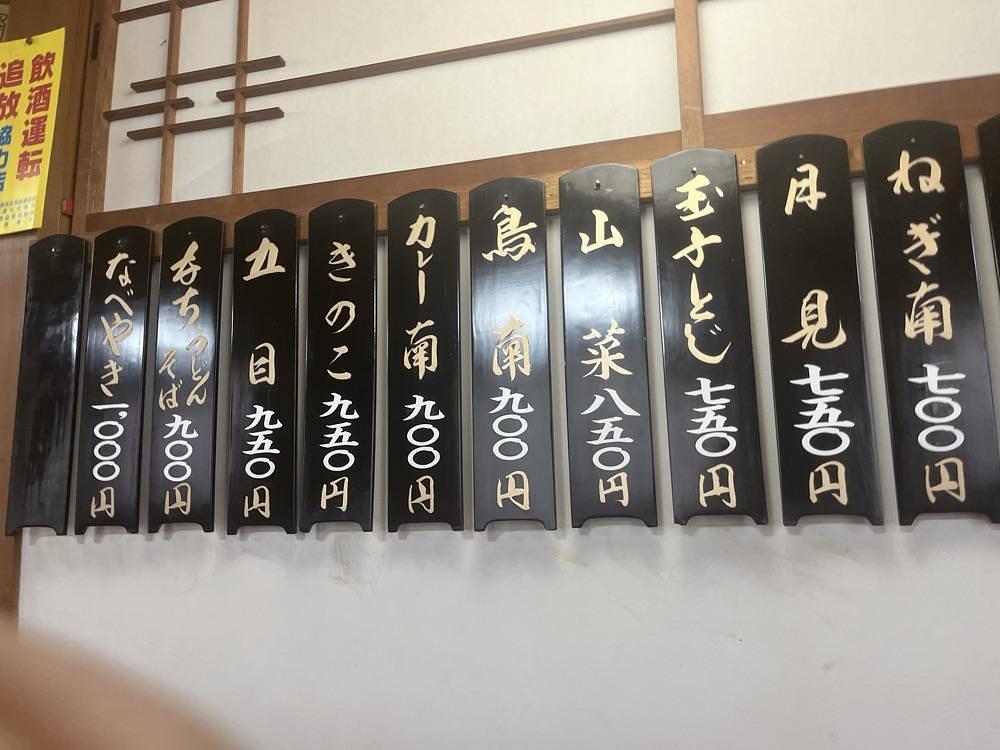 ねぎ南 七〇〇円
月見 七五〇円
玉子とじ 七五〇円
山菜 八五〇円
鳥南 九〇〇円
カレー南 九〇〇円
きのこ 九五〇円
五目 九五〇円
もちうどん
そば 九〇〇円
なべやき 一,〇〇〇円
飲酒運転
追放 協力店